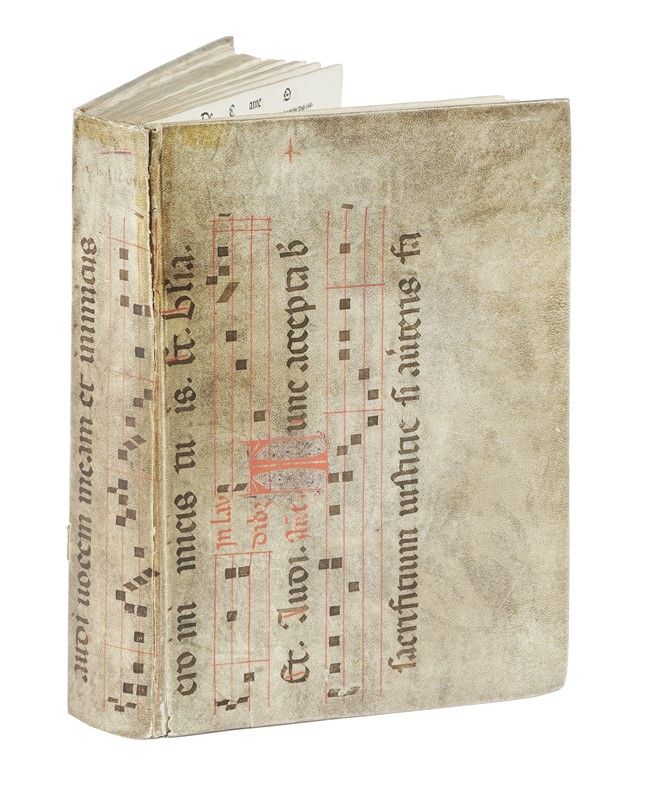 audi uocem meam et inimicis
ero ini micis tu is.
In lau
dibꝫ
Añt.
Audi. Tunc accepta b
sacrificium iustitie si aũteris fa